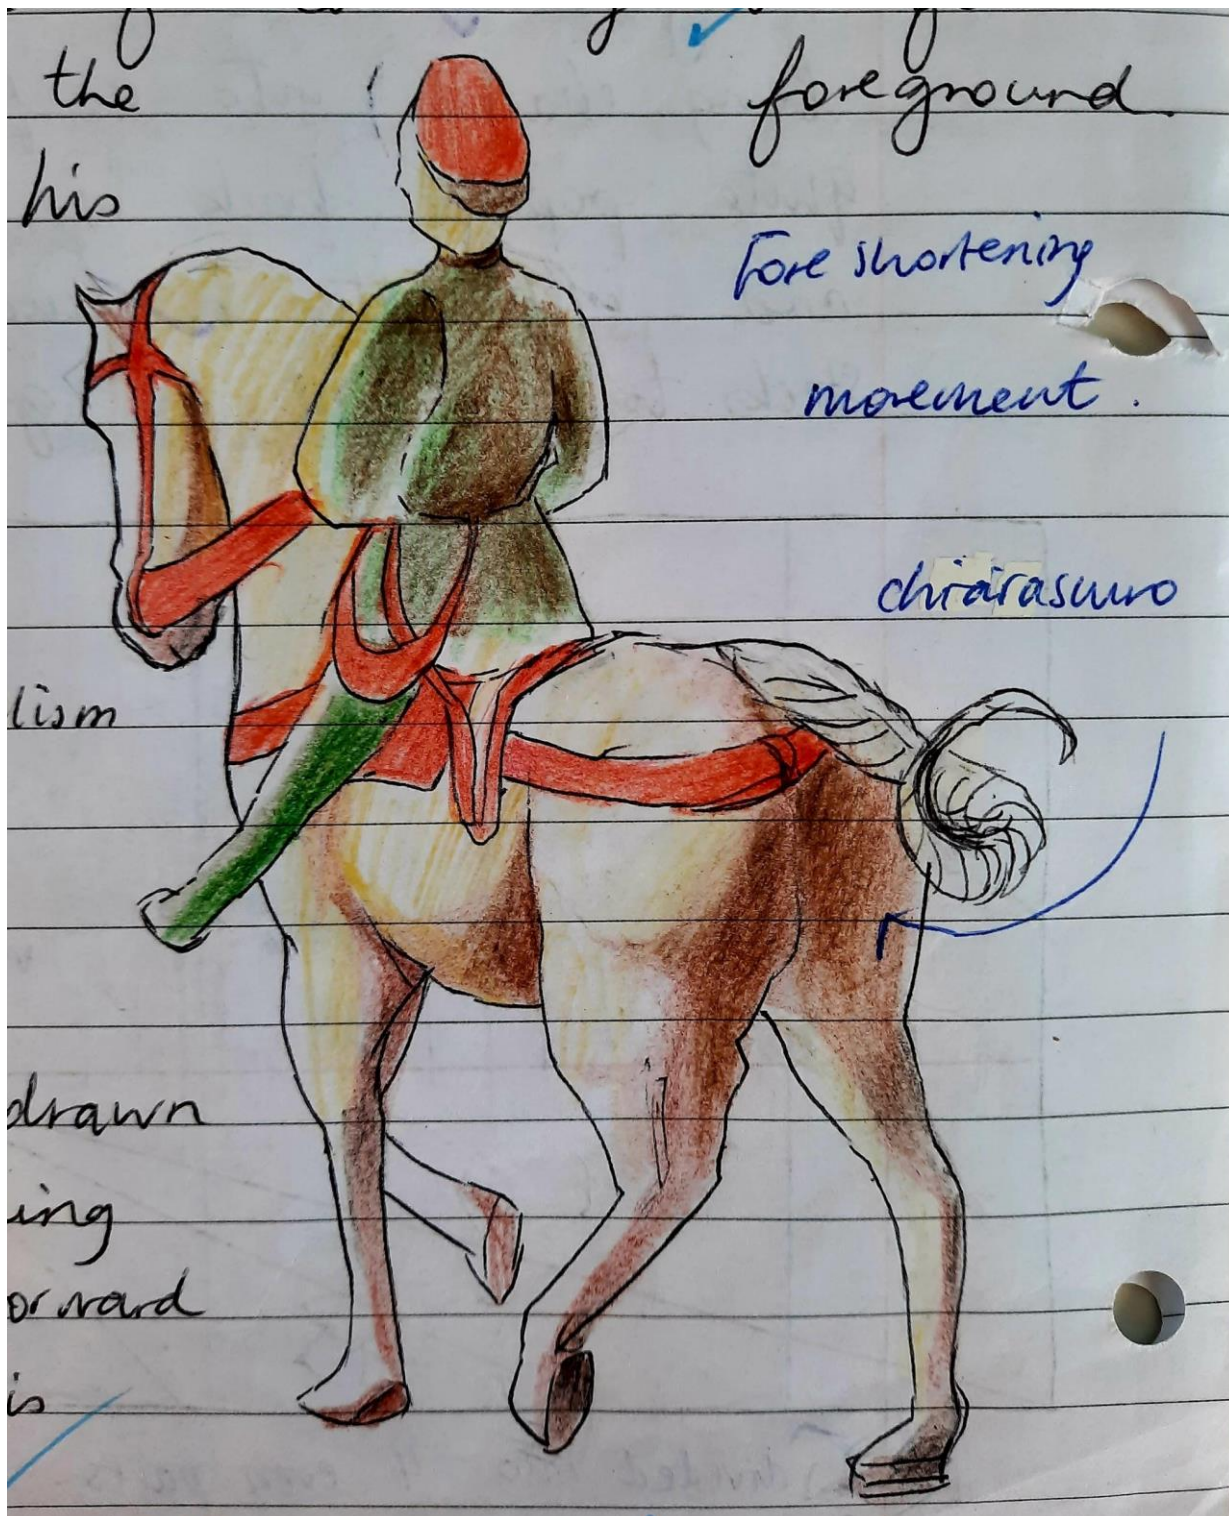 the foreground
his
Foreshortening
movement.
chiarascuro
lism
drawn
ing
orward
is